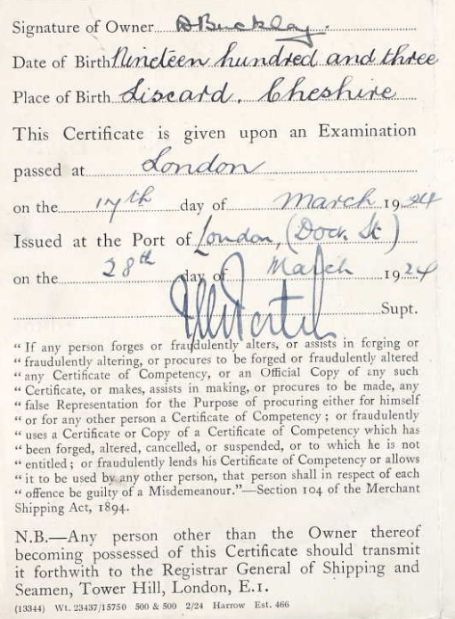 Signature of Owner ABuckley.
Date of Birth Nineteen hundred and three
Place of Birth Liscard. Cheshire
This Certificate is given upon an Examination
passed at London
on the 17th day of March 1924
Issued at the Port of London, (Dock St)
on the 28th day of March 1924
Supt.
“ If any person forges or fraudulently alters, or assists in forging or
“ fraudulently altering, or procures to be forged or fraudulently altered
“ any Certificate of Competency, or an Official Copy of any such
“ Certificate, or makes, assists in making, or procures to be made, any
“ false Representation for the Purpose of procuring either for himself
“ or for any other person a Certificate of Competency ; or fraudulently
“ uses a Certificate or Copy of a Certificate of Competency which has
“ been forged, altered, cancelled, or suspended, or to which he is not
“ entitled ; or fraudulently lends his Certificate of Competency or allows
“ it to be used by any other person, that person shall in respect of each
“ offence be guilty of a Misdemeanour.”—Section 104 of the Merchant
Shipping Act, 1894.
N.B.—Any person other than the Owner thereof
becoming possessed of this Certificate should transmit
it forthwith to the Registrar General of Shipping and
Seamen, Tower Hill, London, E.1.
(13344) Wt. 23437/15750 500 & 500 2/24 Harrow Est. 466